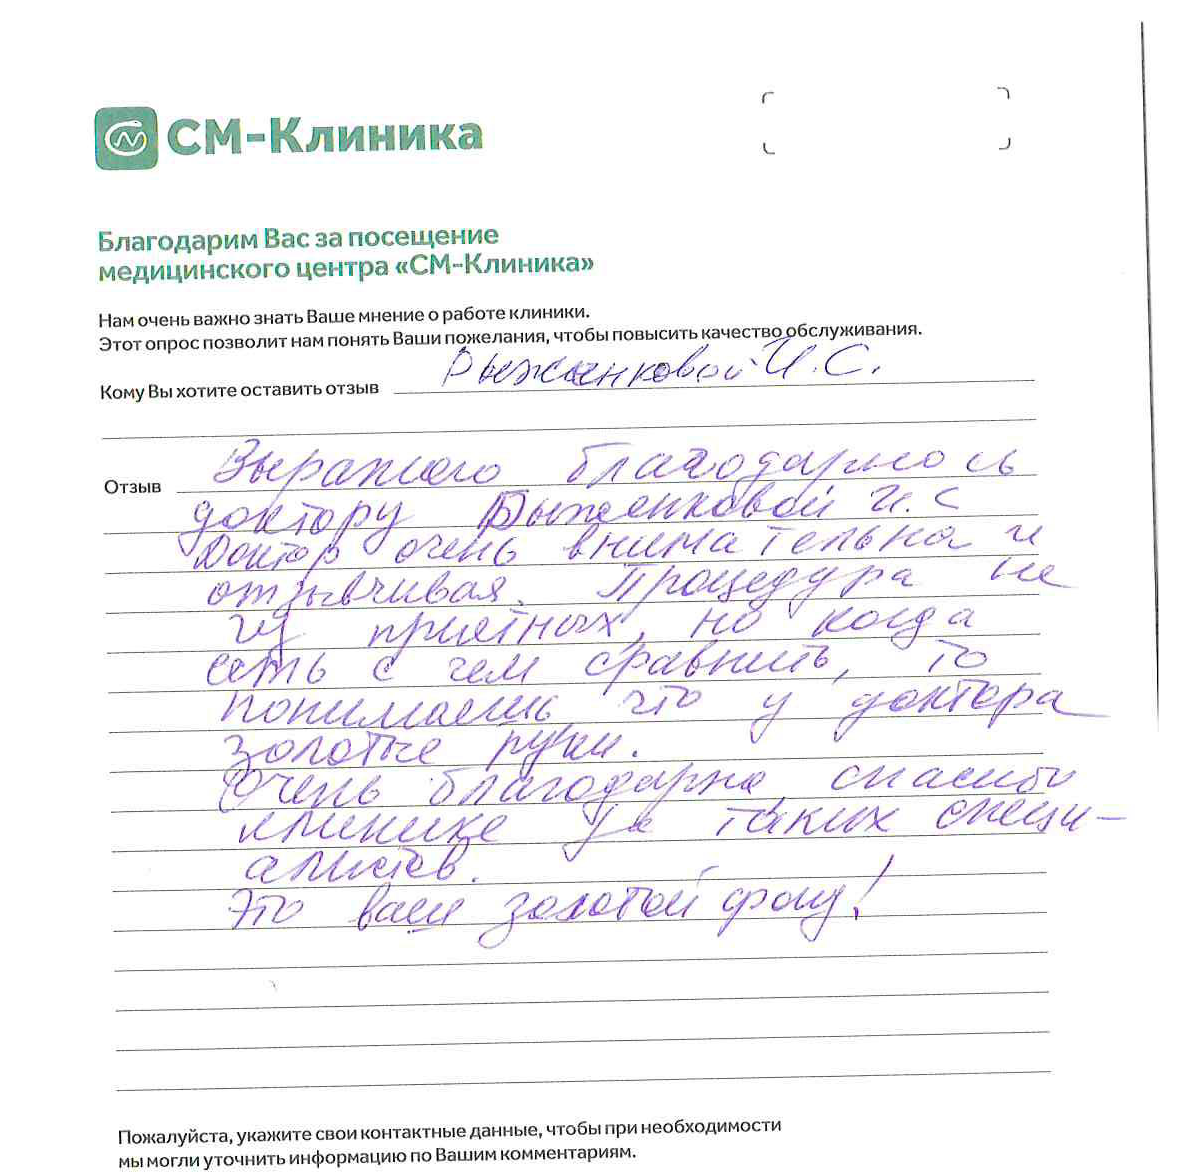 СМ-Клиника
Благодарим Вас за посещение
медицинского центра «СМ-Клиника»
Нам очень важно знать Ваше мнение о работе клиники.
Этот опрос позволит нам понять Ваши пожелания, чтобы повысить качество обслуживания.
Кому Вы хотите оставить отзыв Рыженковой И.С.
Отзыв Выражаю благодарность
доктору Рыженковой И.С
Доктор очень внимательна и
отзывчивая. Процедура не
из приятных, но когда
есть с чем сравнить, то
понимаешь что у доктора
золотые руки.
Очень благодарна, спасибо
клинике за таких специ-
алистов.
Это ваш золотой фонд!
Пожалуйста, укажите свои контактные данные, чтобы при необходимости
мы могли уточнить информацию по Вашим комментариям.